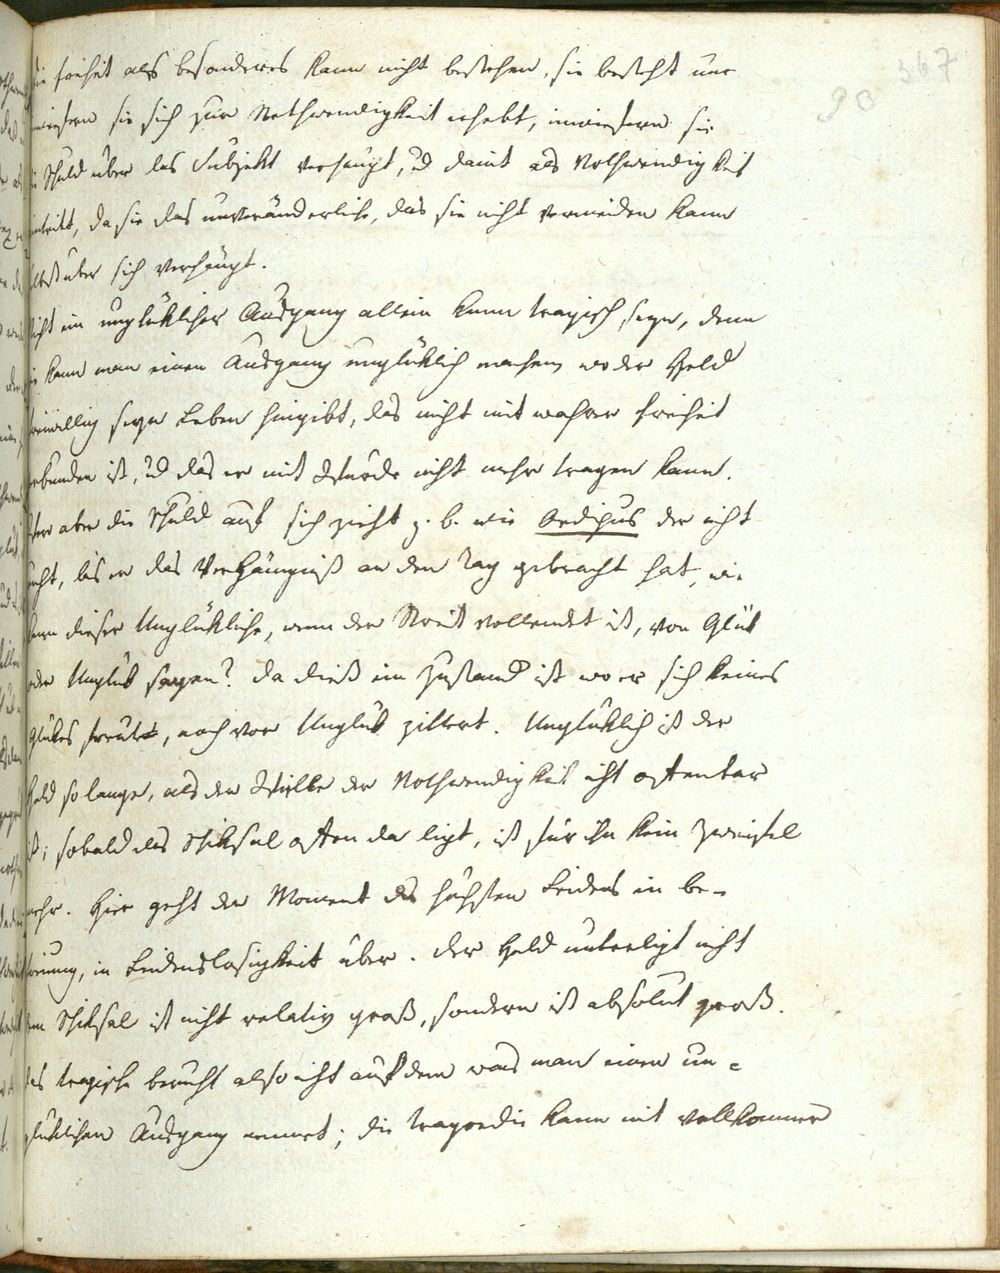 367
90
die Freiheit als besonderes kann nicht bestehen, sie besteht nur
inwiefern sie sich zur Nothwendigkeit erhebt, inwiefern sie
die Schuld über das Subjekt verhängt, u͞d damit als Nothwendigkeit
eintritt, da sie das unveränderliche, das sie nicht vermeiden kann
selbst über sich verhängt.
Nicht ein unglüklicher Ausgang allein kann tragisch seyn, denn
wie kann man einen Ausgang unglüklich machen wo der Held
freiwillig seyn Leben hingibt, das nicht mit wahrer Freiheit
verbunden ist, u͞d das er mit Würde nicht mehr tragen kann.
aber die Schuld auf sich zieht z. b. wie Oedipus der nicht
ruht, bis er das Verhängniß an den Tag gebracht hat, wie
kann dieser Unglükliche, wenn der Streit vollendet ist, von Glük
oder Unglük sagen? da dieß ein Zustand ist wo er sich keines
Glükes freut, noch vor Unglük zittert. Unglüklich ist der
Held so lange, als der Wille der Nothwendigkeit nicht offenbar
ist; sobald das Schiksal offen da ligt, ist für ihn kein Zweifel
mehr. Hier geht der Moment des höchsten Leidens in be-
freiung, in Leidenslosigkeit über. der Held unterligt nicht
dem Schiksal ist nicht relativ groß, sondern ist absolut groß.
das tragische beruht also nicht auf dem was man einen un-
glüklichen Ausgang nennt; die tragoedie kann mit vollkommner